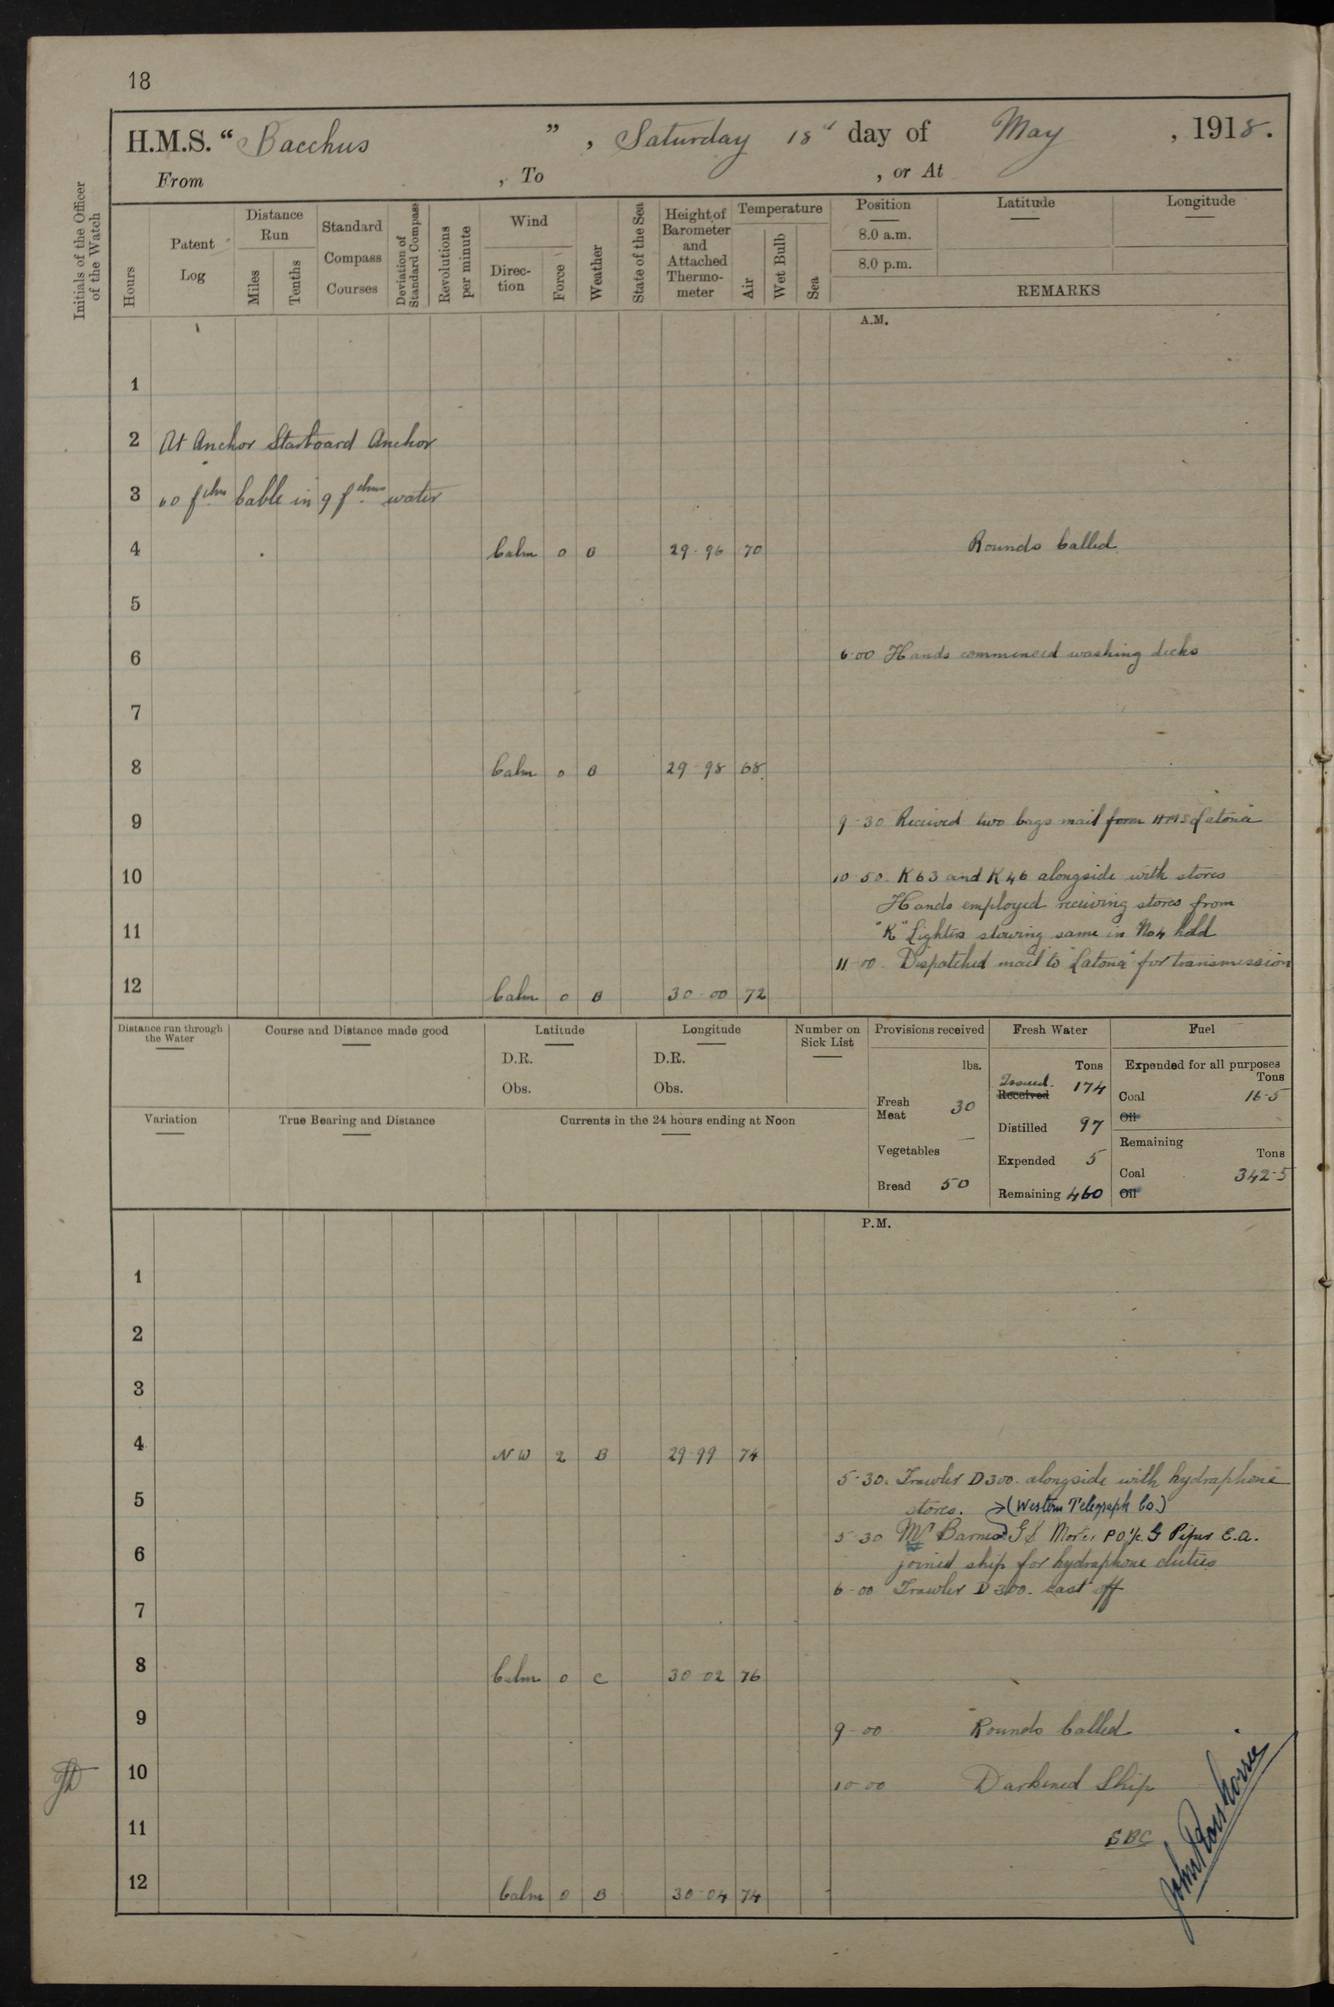 18
H.M.S. “ Bacchus ” , Saturday 18th day of May , 1918.
From , To , or At
Initials of the Officer of the Watch
Hours
Patent Log
Distance Run
Miles
Tenths
Standard Compass Courses
Deviation of Standard Compass
Revolutions per minute
Wind
Direction
Force
Weather
State of the Sea
Height of Barometer and Attached Thermometer
Temperature
Air
Wet Bulb
Sea
Position
8.0 a.m.
8.0 p.m.
Latitude
Longitude
REMARKS
A.M.
1
2 At Anchor Starboard Anchor
3 60 fthms Cable in 9 fthms water
4 Calm 0 B 29·96 70 Rounds Called
5
6 6·00 Hands commenced washing decks
7
8 Calm 0 B 29·98 68
9 9·30 Received two bags mail from HMS Latona
10 10·50 K63 and K46 alongside with stores
Hands employed receiving stores from
11 "K" Lighters stowing same in No4 hold
11·00 Dispatched mail to "Latona" for transmission
12 Calm 0 B 30·00 72
Distance run through the Water
Course and Distance made good
Latitude
D.R.
Obs.
Longitude
D.R.
Obs.
Number on Sick List
Provisions received
lbs.
Fresh Meat 30
Vegetables —
Bread 50
Fresh Water
Tons
Issued
Received 174
Distilled 97
Expended 5
Remaining 460
Fuel
Expended for all purposes
Tons
Coal 16·5
Oil
Remaining
Tons
Coal 342·5
Oil
Variation
True Bearing and Distance
Currents in the 24 hours ending at Noon
P.M.
1
2
3
4 NW 2 B 29·99 74
5·30. Trawler D300. alongside with hydraphone
5 stores. (Western Telegraph Co.)
5·30 Mr Barnes G S PO G Piper E.A.
6 joined ship for hydraphone duties
6·00 Trawler D300. cast off
7
8 Calm 0 C 30·02 76
9 9·00 Rounds Called
10 10·00 Darkened Ship
11 SBC
12 Calm 0 B 30·04 74